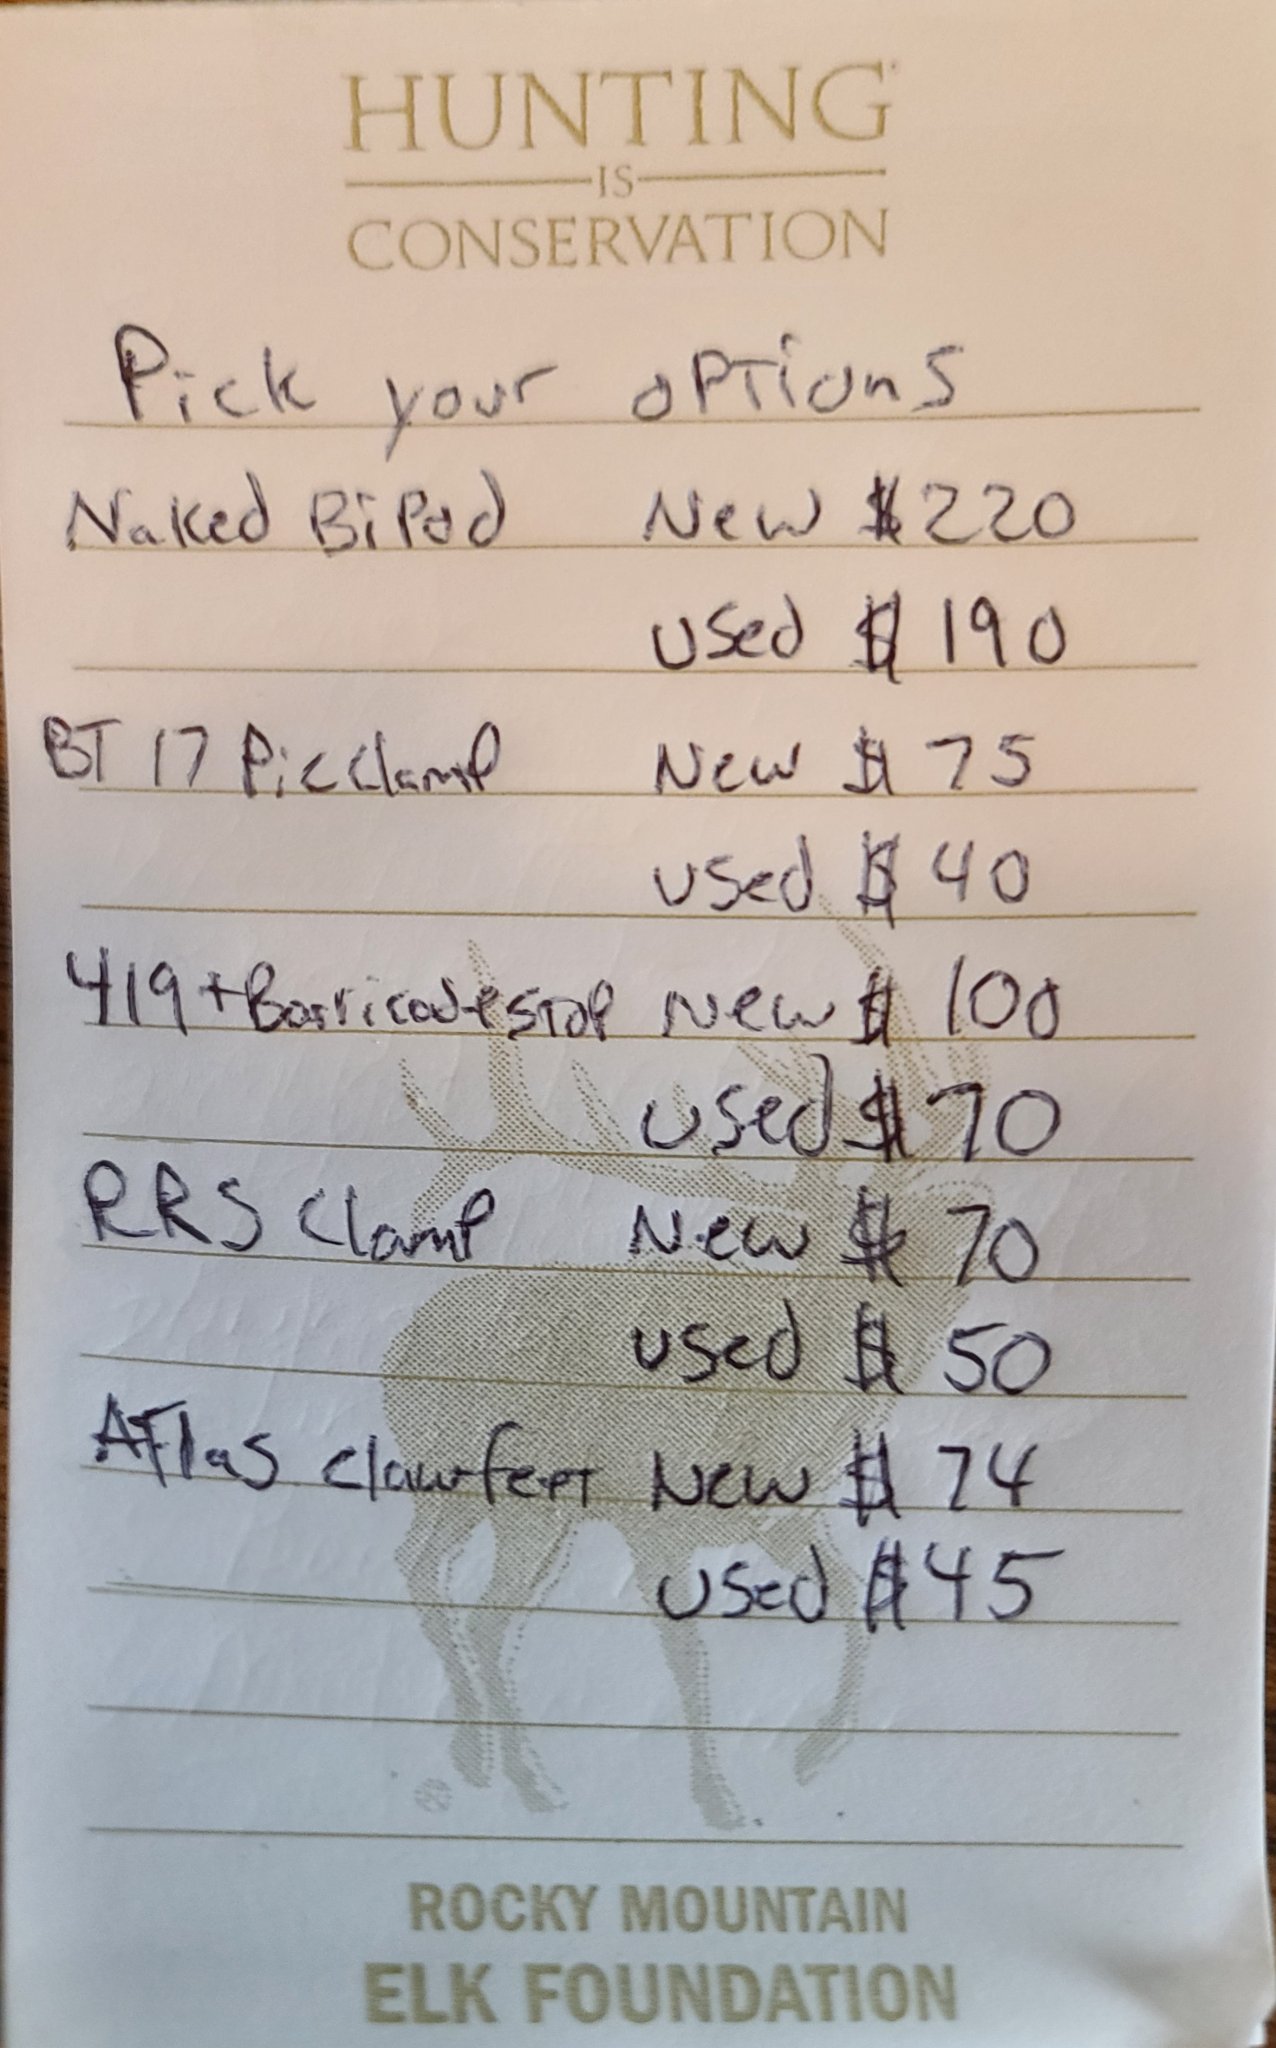 HUNTING
IS
CONSERVATION
Pick your options
Naked Bipod New $220
used $190
BT 17 Pic Clamp New $75
used $40
419 + Barricade stop New $100
used $70
RRS Clamp New $70
used $50
Atlas claw feet New $74
used $45
ROCKY MOUNTAIN
ELK FOUNDATION